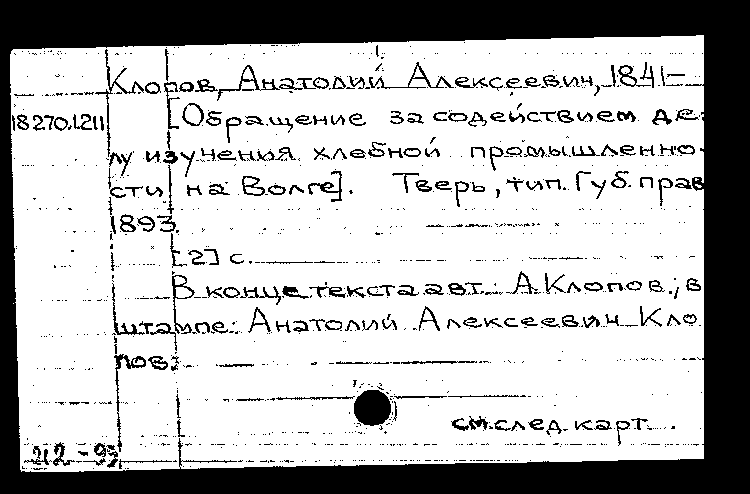 Клопов, Анатолий Алексеевич, 1841-
18270.1.211 [Обращение за содействием де-
лу изучения хлебной промышленно-
сти на Волге]. Тверь, тип. Губ. прав
1893.
[2] с.
В конце текста авт.: А.Клопов.; в
штампе: Анатолий Алексеевич Кло
пов.
см. след. карт.
212-93